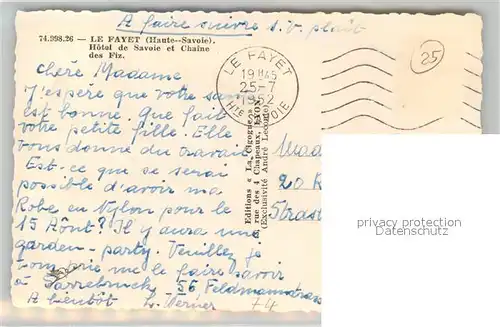 A faire suivre s.V. plaît
74.998.26 — LE FAYET (Haute--Savoie).
Hôtel de Savoie et Chaîne
des Fiz.
25
LE FAYET
19H45
25-7
1952
Hte SAVOIE
chère Madame
J'espère que votre santé
est bonne. Que fait
votre petite fille. Elle
vous donne du travail
Est-ce que ce serai
possible d'avoir ma
Robe en Nylon pour le
15 Aônt? Il y aura une
garden-party. Veuillez je
vous prie me le faire savoir
à Sarrebruck, 56 Feldmannstrasse
A bientôt
74
Editions « La Cigogne »
8, rue des 4 Chapeaux, LYON
(Exclusivité André Leconte)
Mada
20 R
Stras
privacy protection
Datenschutz